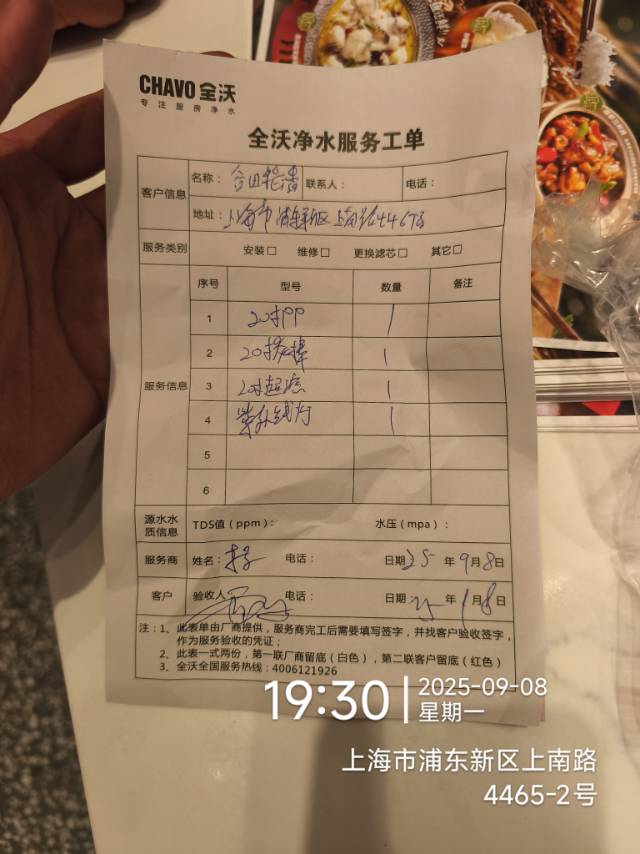 CHAVO 全沃
专注厨房净水
全沃净水服务工单
客户信息 名称： 联系人： 电话：
地址：上海市浦东新区上南路4467号
服务类别 安装□ 维修□ 更换滤芯□ 其它□
服务信息 序号 型号 数量 备注
1 20寸PP 1
2 20寸碳棒 1
3 20寸超滤 1
4 紫外线灯 1
5
6
源水水质信息 TDS值（ppm）： 水压（mpa）：
服务商 姓名： 电话： 日期 25 年 9 月 8 日
客户 验收人 电话： 日期： 25 年 月 8 日
注：1、此表单由厂商提供，服务商完工后需要填写签字，并找客户验收签字，
作为服务验收的凭证；
2、此表一式两份，第一联厂商留底（白色），第二联客户留底（红色）
3、全沃全国服务热线：4006121926
19:30
2025-09-08
星期一
上海市浦东新区上南路
4465-2号